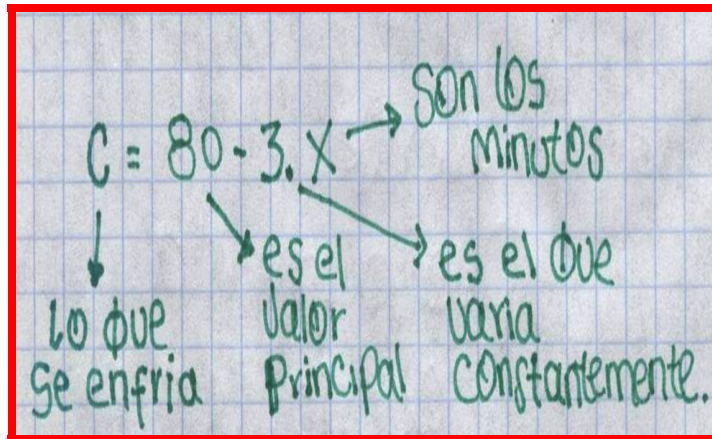 C = 80 - 3. X
son los
minutos
lo que
se enfria
es el
valor
principal
es el que
varia
constantemente.